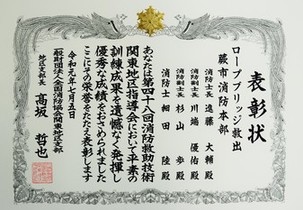 表彰状
ロープブリッジ救出
蕨市消防本部
消防士長 遠藤 大輔 殿
消防副士長 川端 優佑 殿
消防副士長 杉山 歩 殿
消防士 細田 陸 殿
あなたは第四十八回消防救助技術
関東地区指導会において平素の
訓練成果を遺憾なく発揮し
優秀な成績をおさめられました
ここにその栄誉をたたえ表彰します
令和元年七月五日
一般財団法人全国消防協会関東地区支部
地区支部長 高坂 哲也